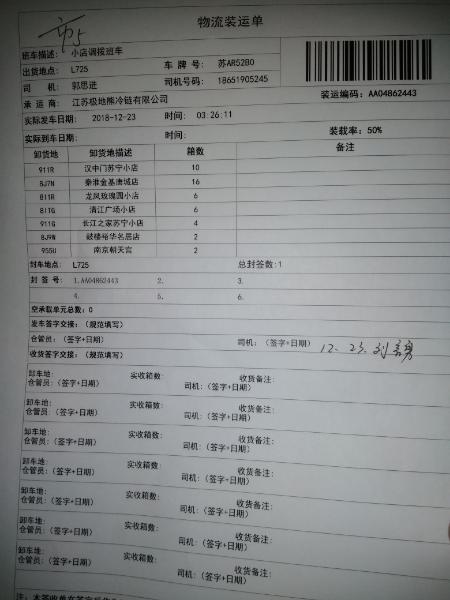 市5
物流装运单
班车描述: 小店调拨班车
出货地点: L725 车 牌 号: 苏AR52B0
司 机: 郭思进 司机号码: 18651905245
承 运 商: 江苏极地熊冷链有限公司 装运编码: AA04862443
实际发车日期: 2018-12-23 时间: 03:26:11
实际到车日期: 时间: 装载率: 50%
卸货地 卸货地描述 箱数 备注
911R 汉中门苏宁小店 10
8J7N 秦淮金基唐城店 16
811R 龙凤玫瑰园小店 6
811G 清江广场小店 6
911G 长江之家苏宁小店 4
8J9W 鼓楼裕华名居店 2
955U 南京朝天宫 2
封车地点: L725 总封签数:1
封 签 号: 1.AA04862443 2. 3.
4. 5. 6.
空承载单元总数: 0
发车签字交接: (规范填写)
仓管员: (签字+日期) 司机: (签字+日期) 12.23.刘
收货签字交接: (规范填写)
卸车地: 实收箱数: 收货备注:
仓管员: (签字+日期) 司机: (签字+日期)
卸车地: 实收箱数: 收货备注:
仓管员: (签字+日期) 司机: (签字+日期)
卸车地: 实收箱数: 收货备注:
仓管员: (签字+日期) 司机: (签字+日期)
卸车地: 实收箱数: 收货备注:
仓管员: (签字+日期) 司机: (签字+日期)
卸车地: 实收箱数: 收货备注:
仓管员: (签字+日期) 司机: (签字+日期)
卸车地: 实收箱数: 收货备注:
仓管员: (签字+日期) 司机: (签字+日期)
卸车地: 实收箱数: 收货备注:
仓管员: (签字+日期) 司机: (签字+日期)